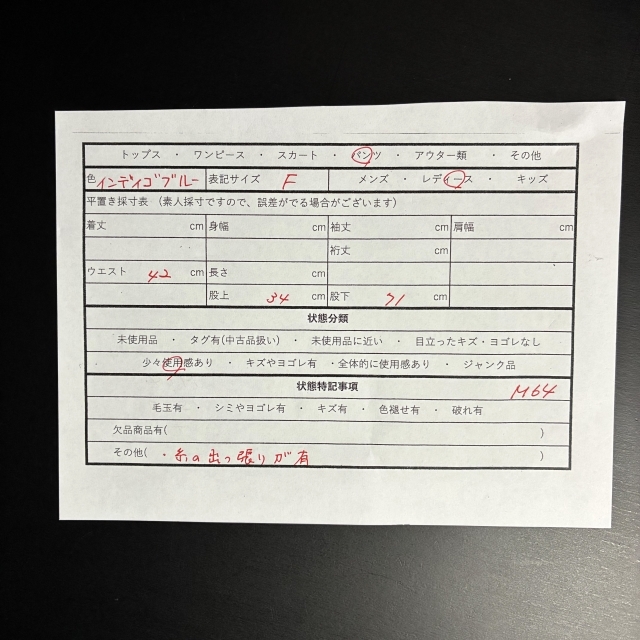 トップス ・ ワンピース ・ スカート ・ パンツ ・ アウター類 ・ その他
色 インディゴブルー 表記サイズ F メンズ ・ レディース ・ キッズ
平置き採寸表 (素人採寸ですので、誤差がでる場合がございます)
着丈 cm 身幅 cm 袖丈 cm 肩幅 cm
裄丈 cm
ウエスト 42 cm 長さ cm
股上 34 cm 股下 71 cm
状態分類
未使用品 ・ タグ有(中古品扱い) ・ 未使用品に近い ・ 目立ったキズ・ヨゴレなし
少々使用感あり ・ キズやヨゴレ有 ・全体的に使用感あり ・ ジャンク品
状態特記事項 M64
毛玉有 ・ シミやヨゴレ有 ・ キズ有 ・ 色褪せ有 ・ 破れ有
欠品商品有( )
その他( ・糸の出っ張りが有 )